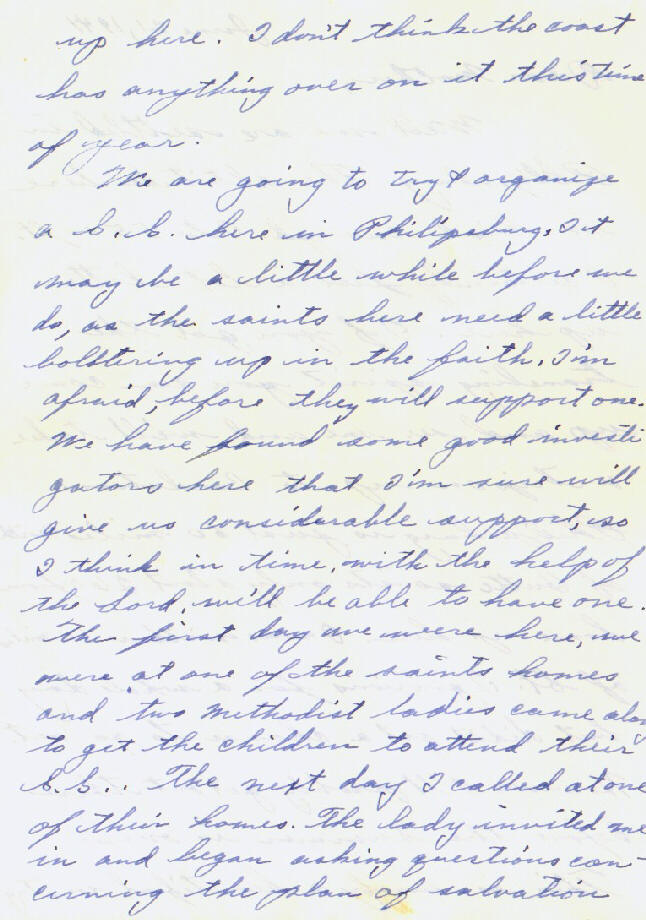 up here. I don't think the coast
has anything over on it this time
of year.
We are going to try & organize
a S.S. here in Philipsburg. It
may be a little while before we
do, as the saints here need a little
bolstering up in the faith, I'm
afraid, before they will support one.
We have found some good investi
gators here that I'm sure will
give us considerable support, so
I think in time, with the help of
the Lord, we'll be able to have one.
The first day we were here, we
were at one of the saints homes
and two Methodist ladies came along
to get the children to attend their
S.S.. The next day I called at one
of their homes. The lady invited me
in and began asking questions con-
cerning the plan of salvation